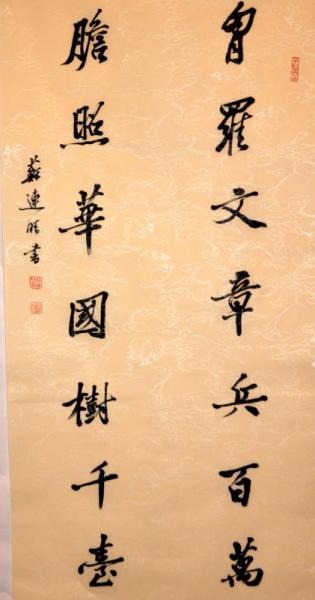 胷羅文章兵百萬
膽照華國樹千臺
蘇連書